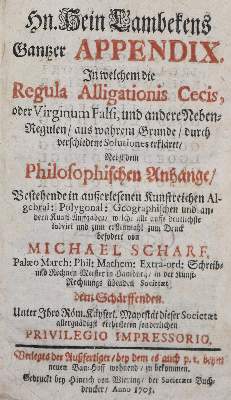 Hn. Hein Lambekens
Gantzer APPENDIX.
In welchem die
Regula Alligationis Cecis,
oder Virginum Falsi, und andere Neben-
Regulen / aus wahrem Grunde / durch
verschiedene Solutiones erkläret /
Nebst dem
Philosophischen Anhange /
Bestehende in außerlesenen Kunstreichen Al-
gebrai: Polygonal: Geographischen und an-
dern Kunst-Aufgaben, welche alle auffs deutlichste
solviet und zum erstenmahl zum Druck
befodert von
MICHAEL SCHARF,
Palæo March: Phil: Mathem: Extra-ord: Schreib-
und Rechnen Meister in Hamburg / in der Kunst-
Rechnungs übenden Societæt
dem Schärffenden.
Unter Ihro Röm. Käyserl. Mayestät dieser Societæt
allergnädigst ertheileten sonderlichen
PRIVILEGIO IMPRESSORIO.
Verleget der Außfertiger / bey dem es auch p. t. beym
neuen Bau-Hoff wohnend / zu bekommen.
Gedruckt bey Hinrich von Wiering / der Societæt Buch-
drucker / Anno 1703.